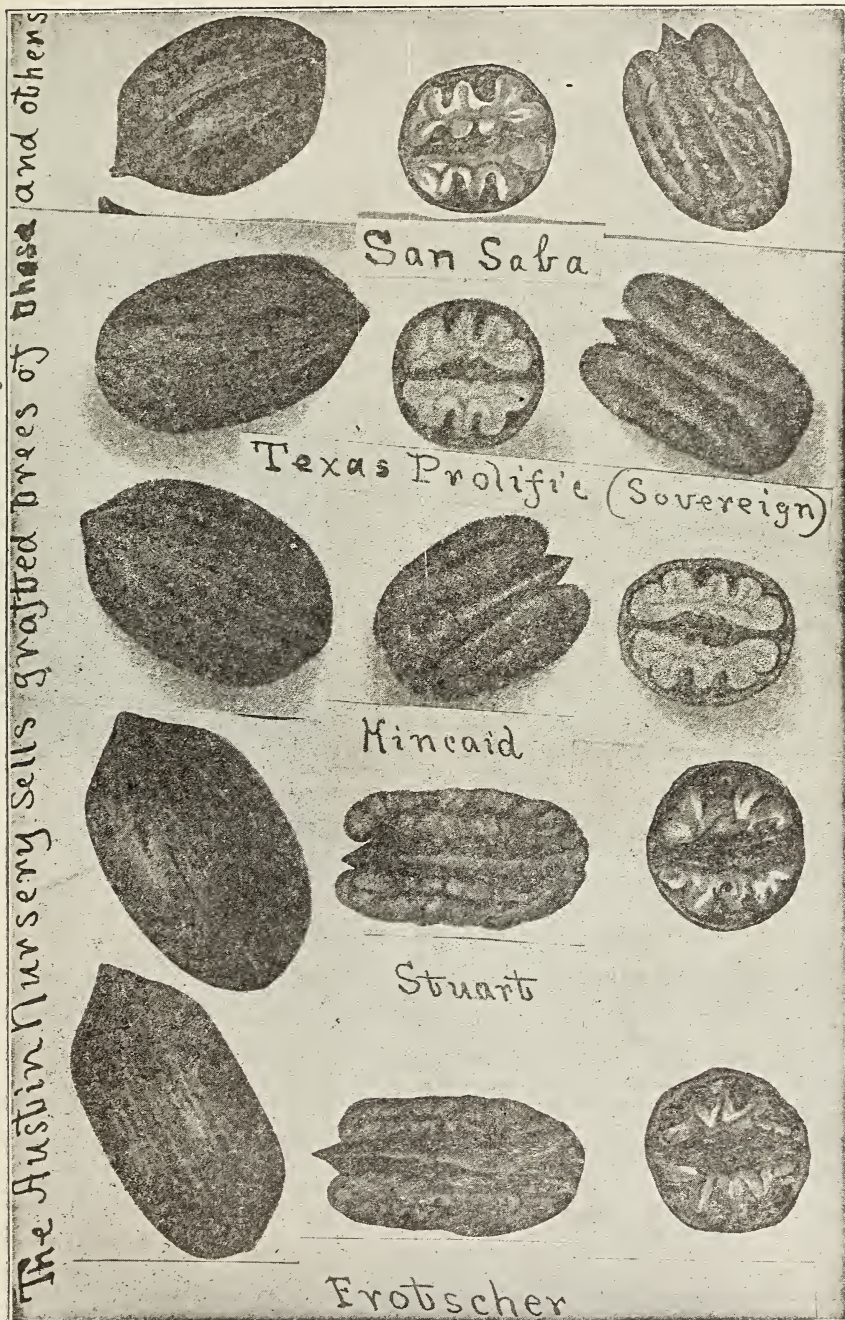 The Austin Nursery sells grafted trees of these and others
San Saba
Texas Prolific (Sovereign)
Kincaid
Stuart
Frotscher